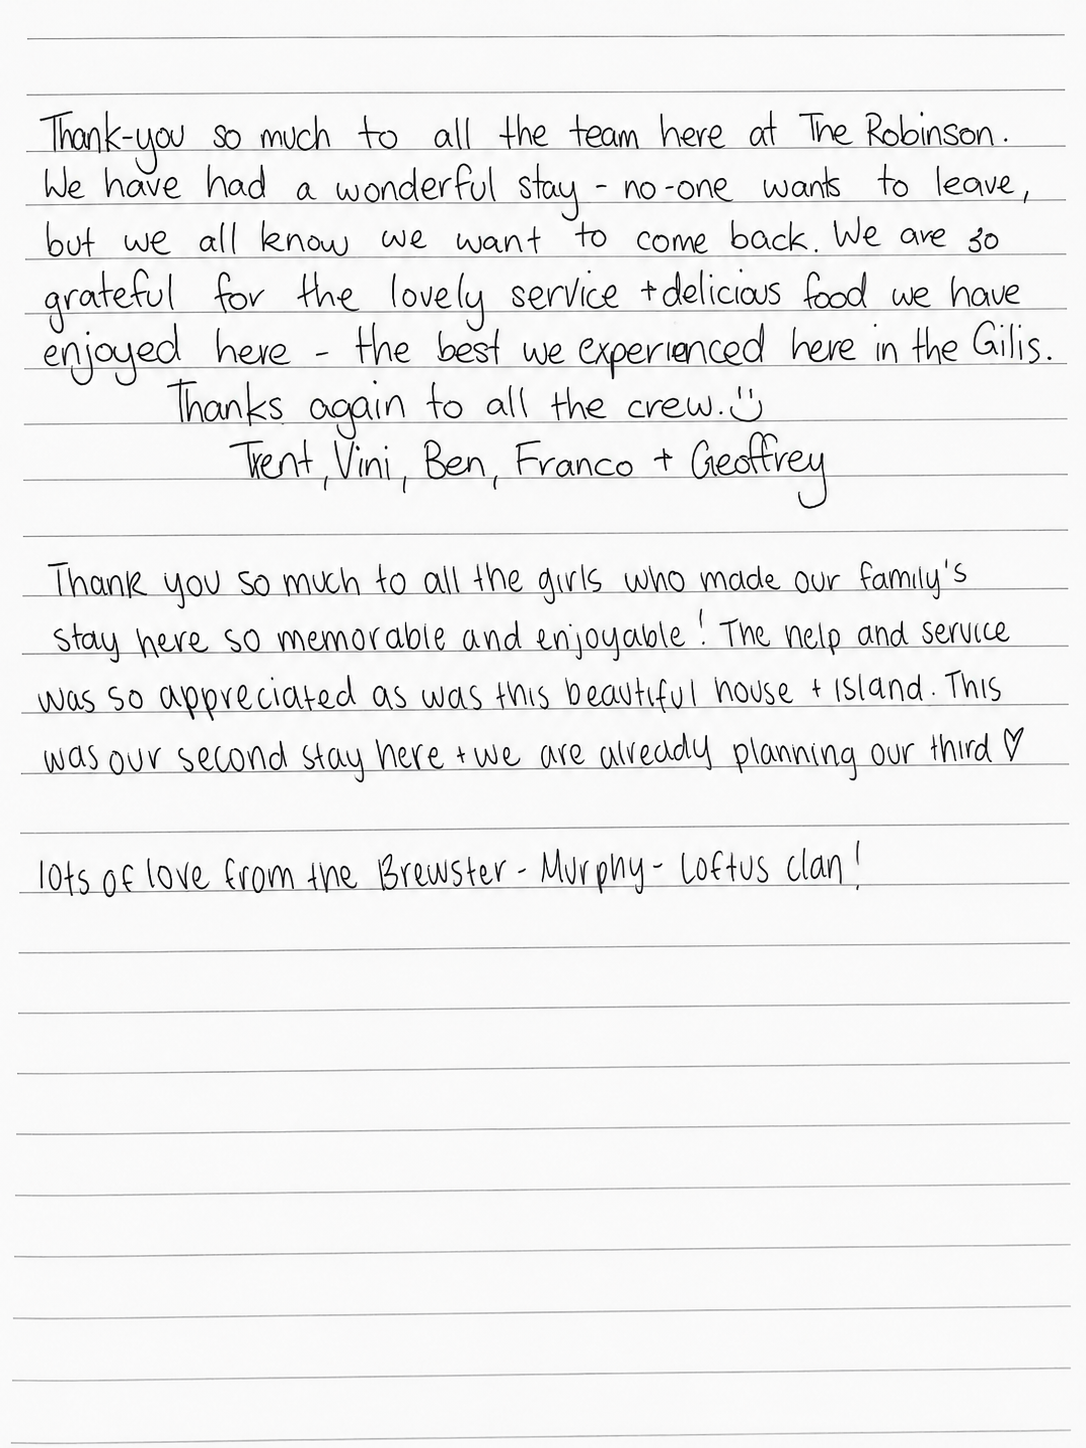 Thank-you so much to all the team here at The Robinson.
We have had a wonderful stay - no-one wants to leave,
but we all know we want to come back. We are so
grateful for the lovely service + delicious food we have
enjoyed here - the best we experienced here in the Gilis.
Thanks again to all the crew. :)
Trent, Vini, Ben, Franco + Geoffrey
Thank you so much to all the girls who made our family's
stay here so memorable and enjoyable! The help and service
was so appreciated as was this beautiful house + island. This
was our second stay here + we are already planning our third ♡
lots of love from the Brewster - Murphy - Loftus clan!